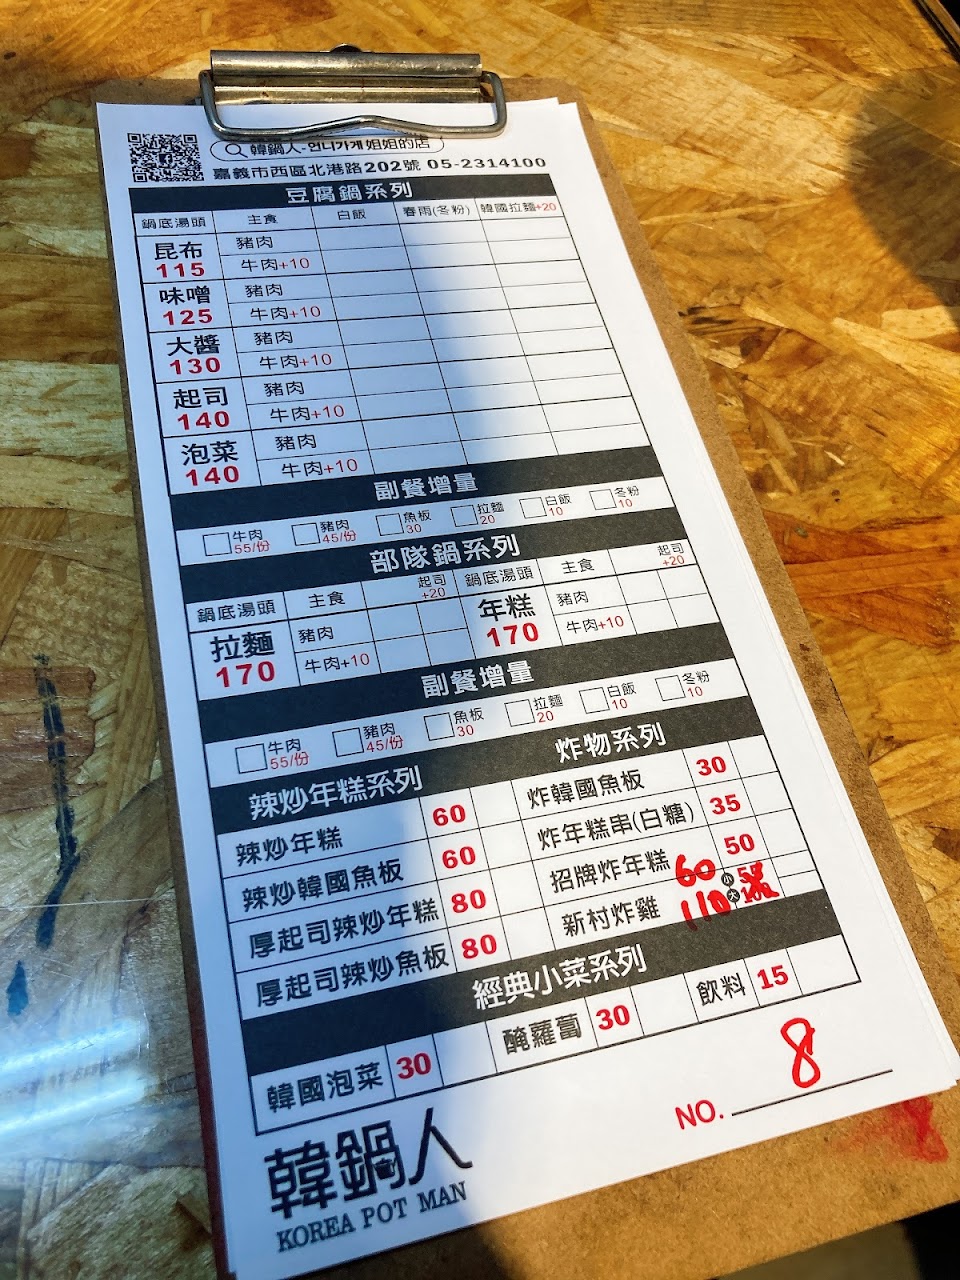 韓鍋人-언니가게 姐姐的店
嘉義市西區北港路202號 05-2314100
豆腐鍋系列
鍋底湯頭 主食 白飯 春雨(冬粉) 韓國拉麵+20
昆布 115 豬肉
牛肉+10
味噌 125 豬肉
牛肉+10
大醬 130 豬肉
牛肉+10
起司 140 豬肉
牛肉+10
泡菜 140 豬肉
牛肉+10
副餐增量
牛肉 55/份 豬肉 45/份 魚板 30 拉麵 20 白飯 10 冬粉 10
部隊鍋系列
鍋底湯頭 主食 起司 +20 鍋底湯頭 主食 起司 +20
拉麵 170 豬肉 年糕 170 豬肉
牛肉+10 牛肉+10
副餐增量
牛肉 55/份 豬肉 45/份 魚板 30 拉麵 20 白飯 10 冬粉 10
辣炒年糕系列 炸物系列
辣炒年糕 60 炸韓國魚板 30
辣炒韓國魚板 60 炸年糕串(白糖) 35
厚起司辣炒年糕 80 招牌炸年糕 50
厚起司辣炒魚板 80 新村炸雞 60 小 55
110 大 100
經典小菜系列
韓國泡菜 30 醃蘿蔔 30 飲料 15
NO. 8
韓鍋人
KOREA POT MAN